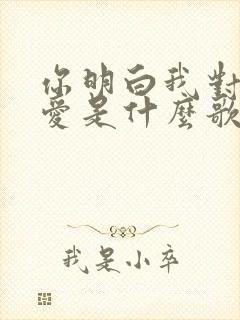 你明白我對
愛是什麼歌
我是小卒